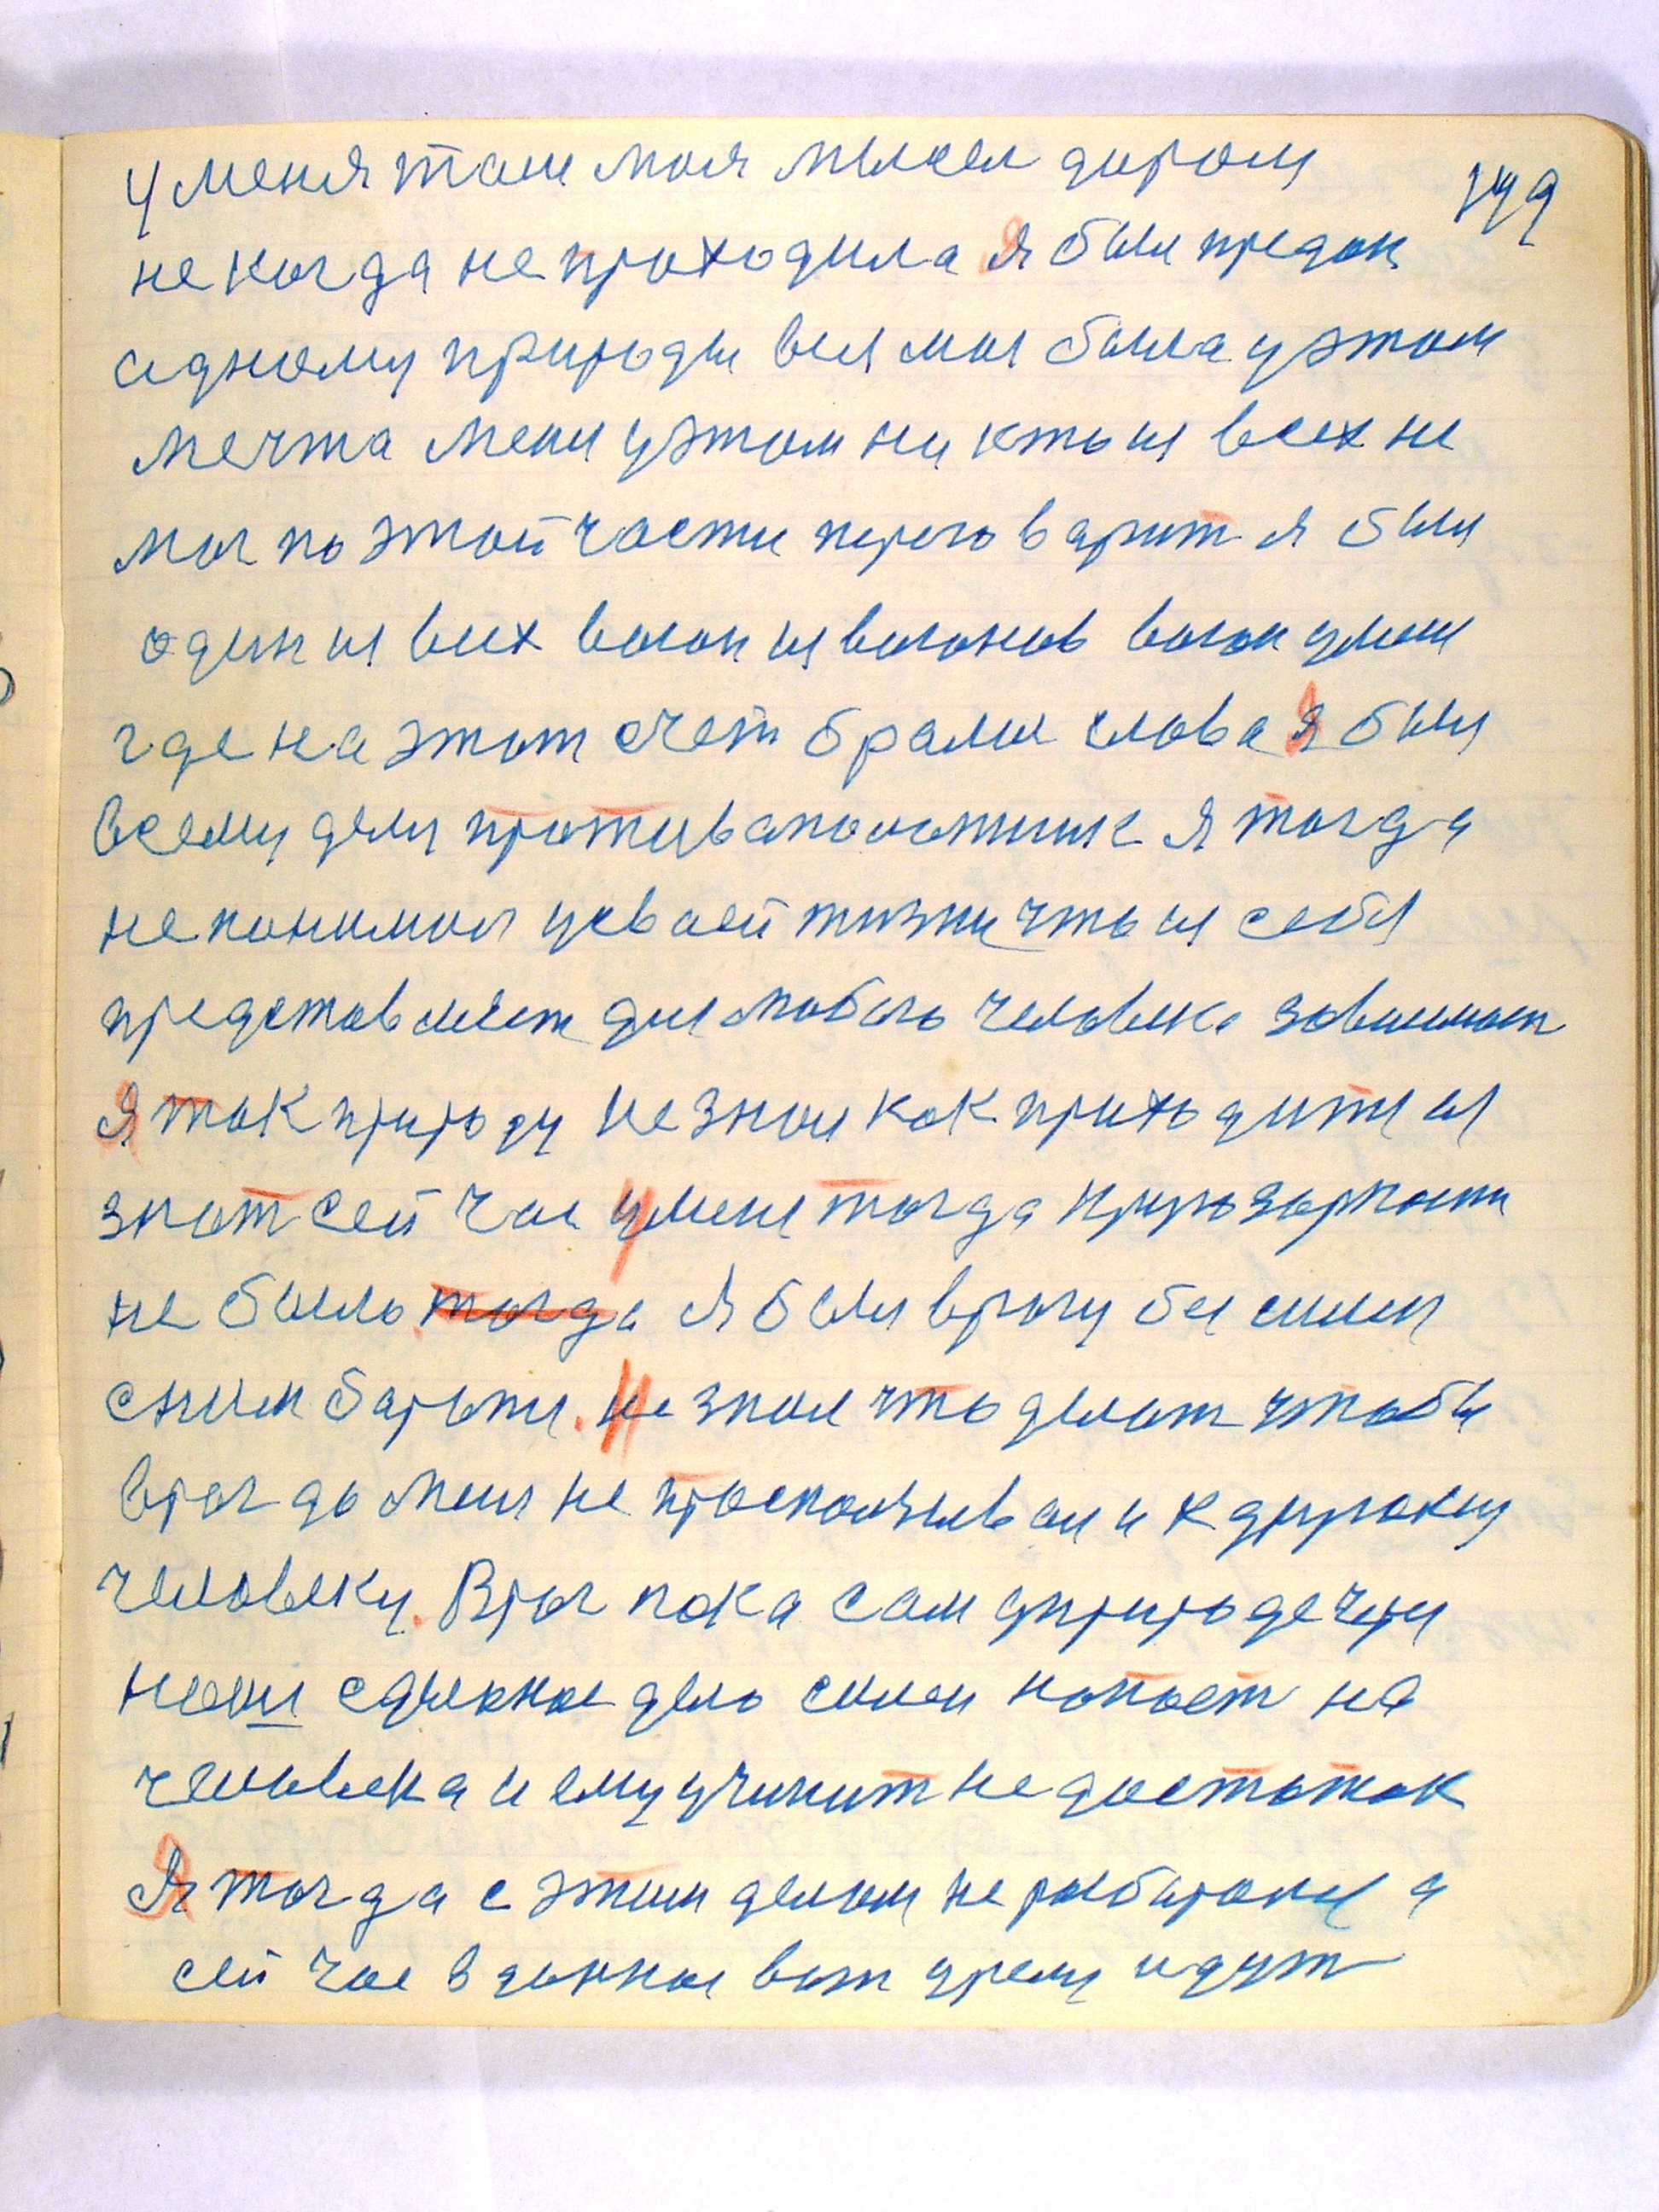 у меня там моя мысел даром
149
не когда не проходила я был предан
одному природы вся моя была у этом
мечта меня у этом ни кто из всех не
мог по этой части переговарит я был
один из всех воген из вогонов воген умен
где на этот счет брали слова я был
всему делу противапоностник я тогда
не понимал у своей жизни что из себя
представляет для любого человека зависимост
я так природу не знал как приходится
знат сей час у меня тогда прирозарности
не было тогда я был врагу без силен
с ним бароти. не знал что делат чтобы
враг до меня не проскользывал и к другому
человеку. Враг пока сам у природе чуть
нести сделанное дело силен напает на
человека и ему учинит не достаток
Я тогда с этим делом не разбирался а
сей час в данное вот время идут